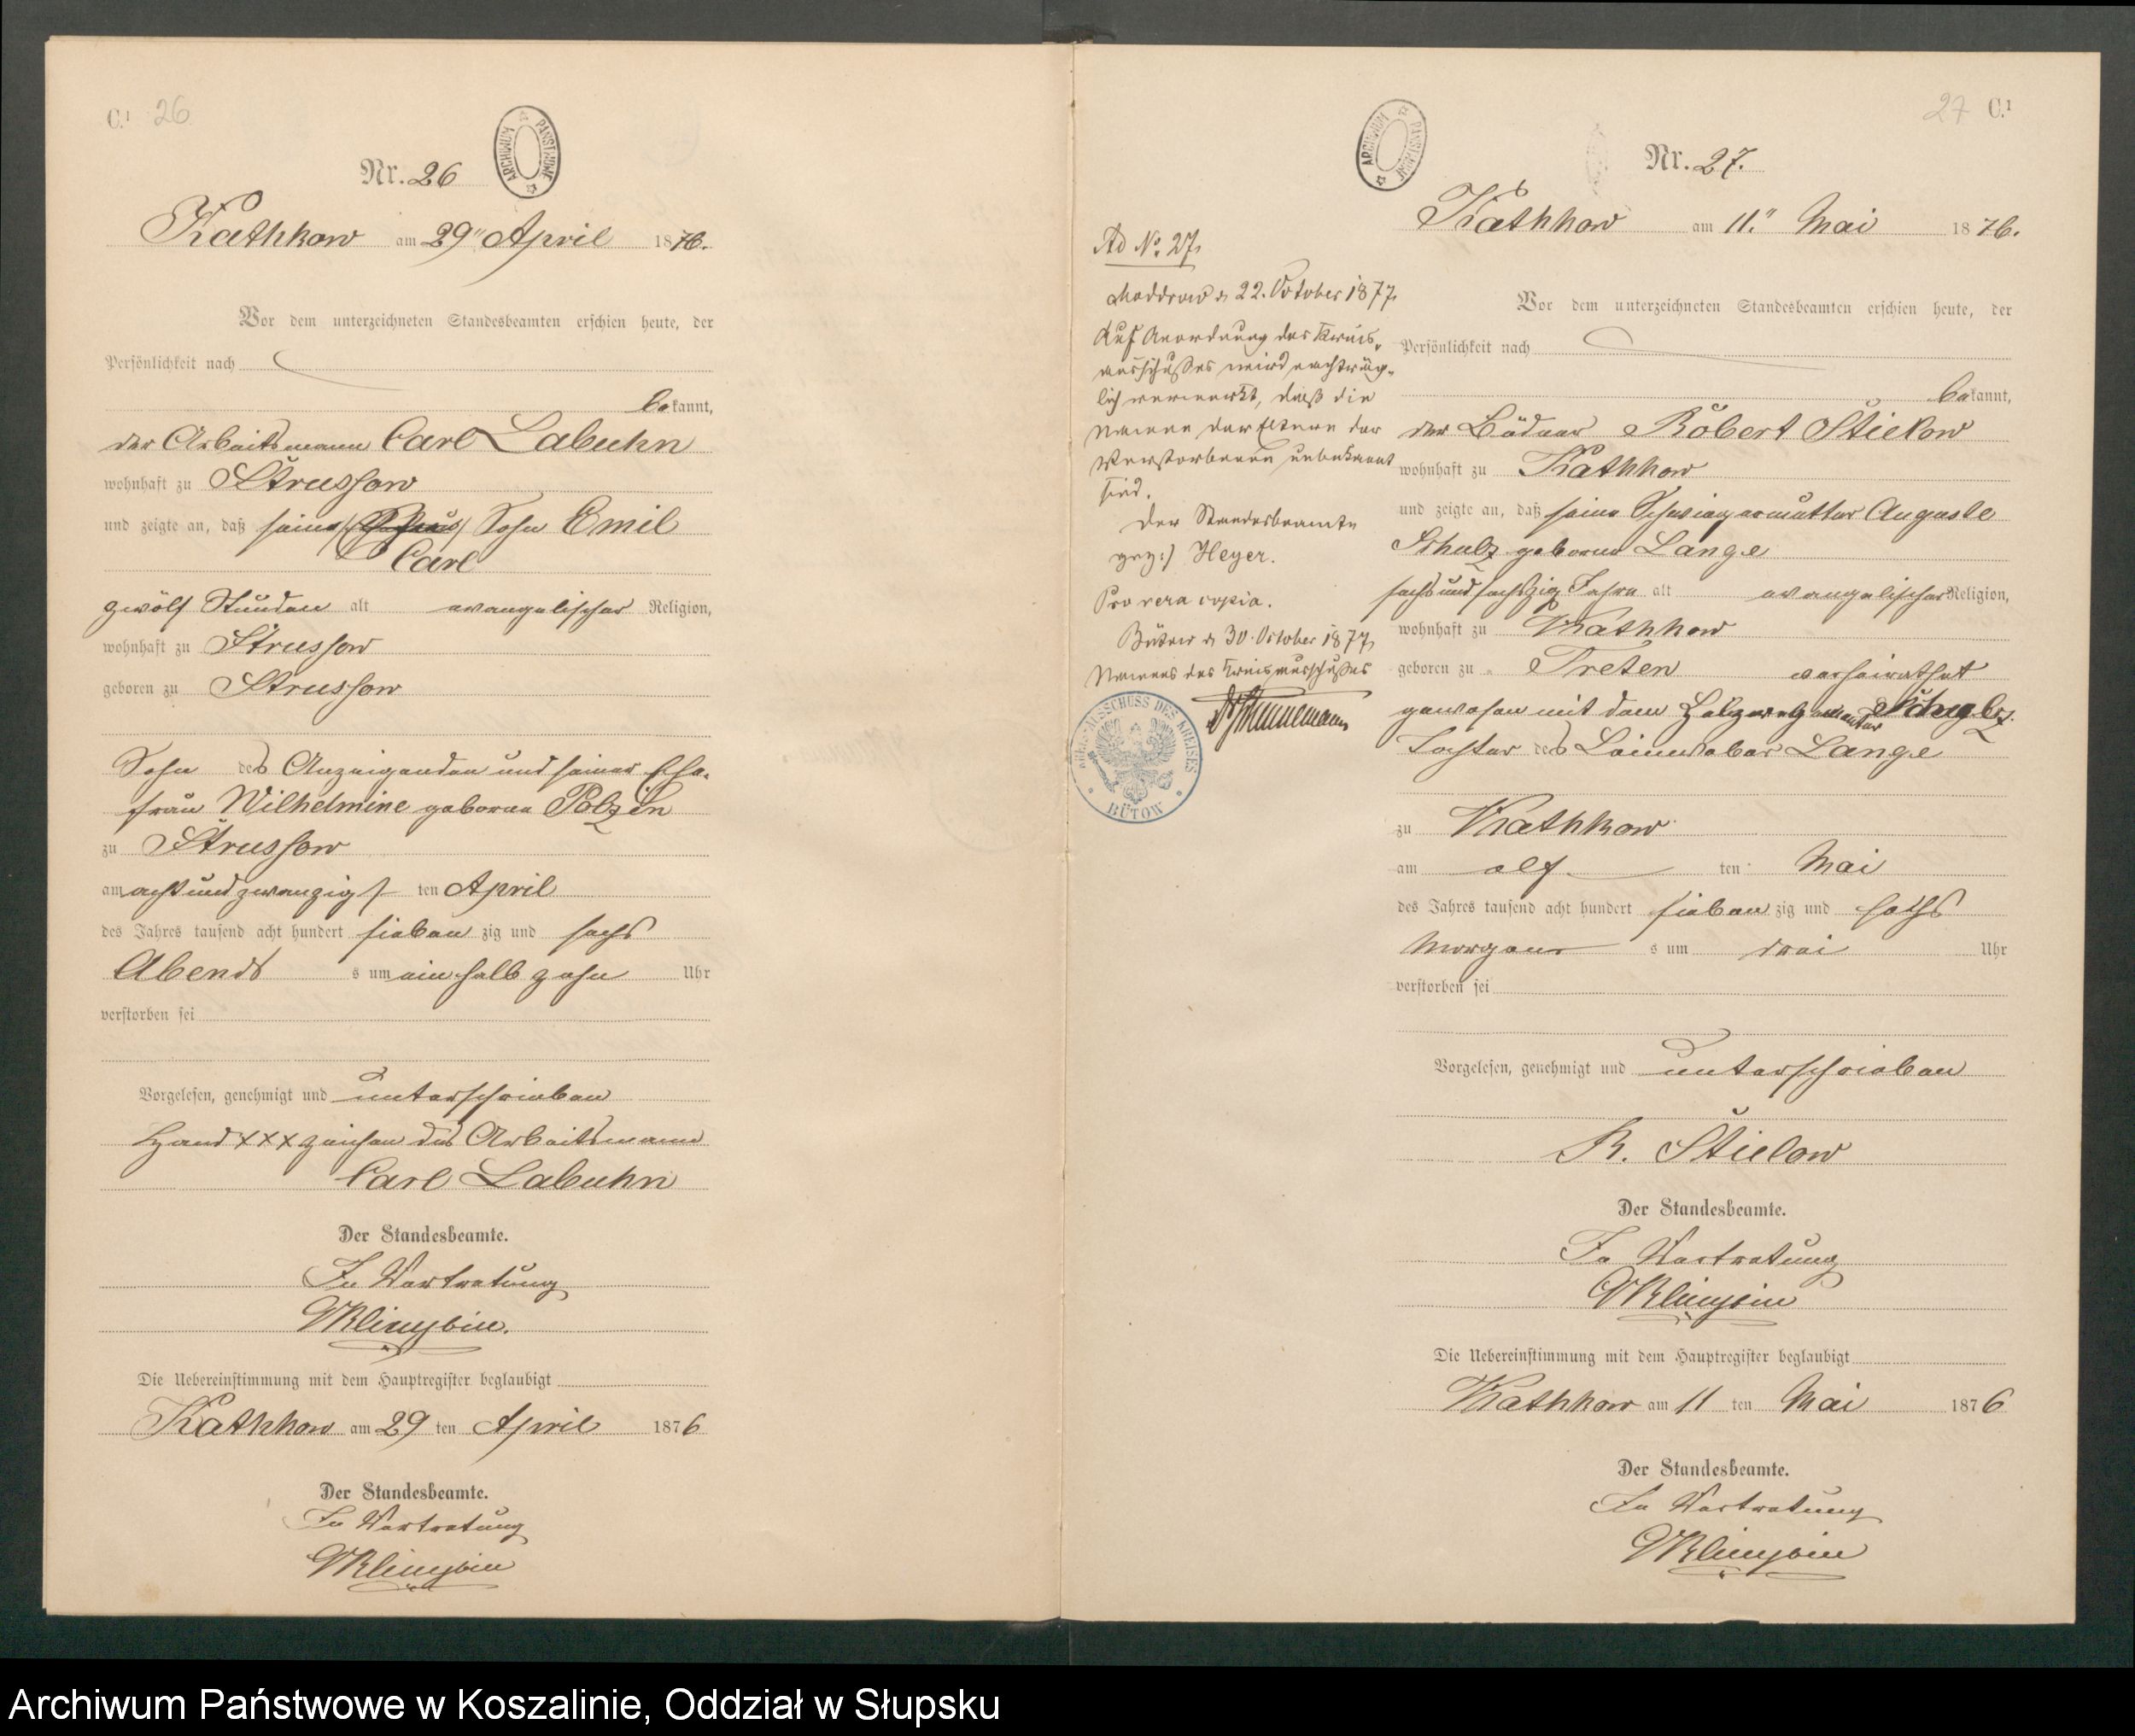 C.¹ 26
ARCHIWUM PAŃSTWOWE
Nr. 26
Kathkow am 29" April 1876.
Vor dem unterzeichneten Standesbeamten erschien heute, der
Persönlichkeit nach
bekannt,
der Arbeitsmann Carl Labuhn
wohnhaft zu Strussow
und zeigte an, daß seine Sohn Emil
Carl
zwölf Stunden alt evangelischer Religion,
wohnhaft zu Strussow
geboren zu Strussow
Sohn des Anzeigenden und seiner Ehe-
frau Wilhelmine geborne Polzin
zu Strussow
am acht und zwanzigs ten April
des Jahres tausend acht hundert sieben zig und sechs
Abends s um ein halb zehn Uhr
verstorben sei
Vorgelesen, genehmigt und unterschrieben
Hand XXX zeichen des Arbeitsmann
Carl Labuhn
Der Standesbeamte.
In Vertretung
Die Uebereinstimmung mit dem Hauptregister beglaubigt
Kathkow am 29 ten April 1876
Der Standesbeamte.
In Vertretung
27 C.¹
ARCHIWUM PAŃSTWOWE
Nr. 27.
Kathkow am 11." Mai 1876.
Vor dem unterzeichneten Standesbeamten erschien heute, der
Persönlichkeit nach
bekannt,
der Büdner Robert Stielow
wohnhaft zu Kathkow
und zeigte an, daß seine Schwiegermutter Auguste
Schulz geborne Lange
sechs und sechszig Jahre alt evangelischer Religion,
wohnhaft zu Kathkow
geboren zu Treten verheirathet
gewesen mit dem
Tochter des Leinweber Lange
zu Kathkow
am elf ten Mai
des Jahres tausend acht hundert sieben zig und sechs
Morgens s um drei Uhr
verstorben sei
Vorgelesen, genehmigt und unterschrieben
R. Stielow
Der Standesbeamte.
In Vertretung
Die Uebereinstimmung mit dem Hauptregister beglaubigt
Kathkow am 11 ten Mai 1876
Der Standesbeamte.
In Vertretung
Ad No. 27.
Moddrow d. 22. October 1877.
Auf Anordnung des Kreis-
ausschusses wird nachträg-
lich vermerkt, daß die
Namen der Eltern der
Verstorbenen unbekannt
sind.
Der Standesbeamte
gez:) Heyer.
Pro vera copia.
Bütow d. 30. October 1877.
Namens des Kreisausschusses
KREIS-AUSSCHUSS DES KREISES
BÜTOW
Archiwum Państwowe w Koszalinie, Oddział w Słupsku